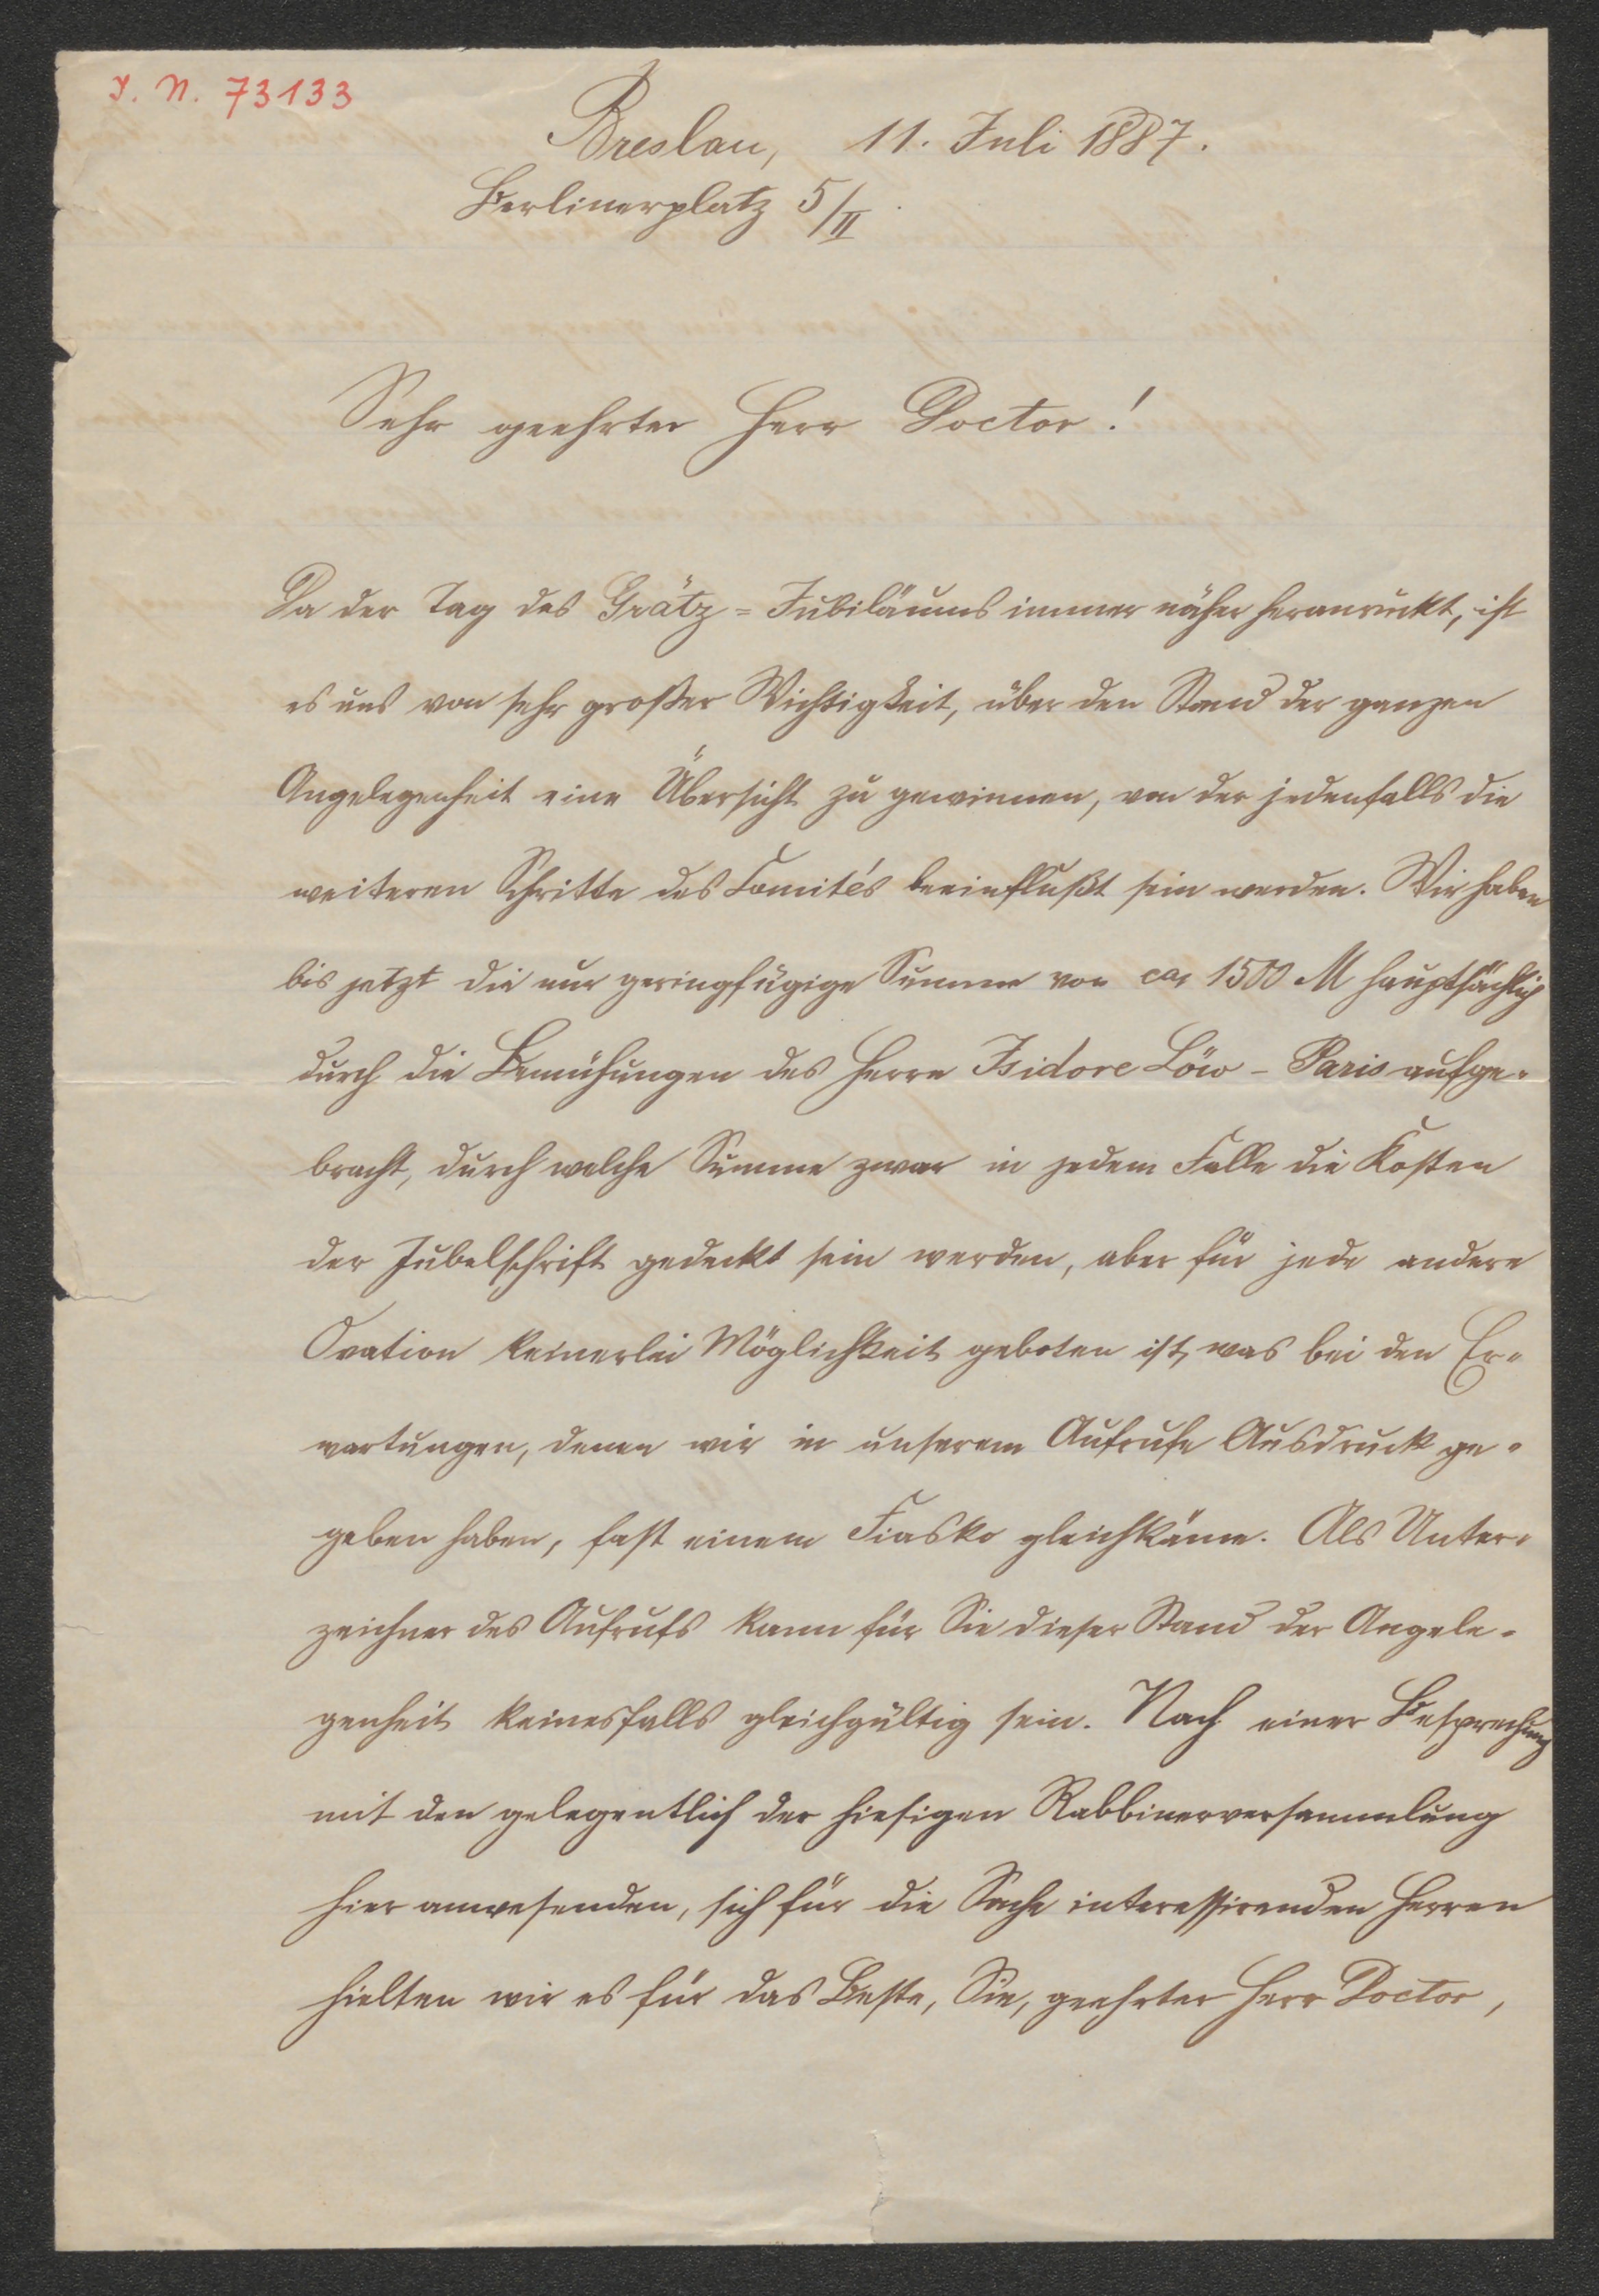 J. N. 73133
Breslau, 11. Juli 1887.
Berlinerplatz 5/II.
Sehr geehrter Herr Doctor!
Da der Tag des Grätz-Jubiläums immer näher heranrückt, ist
es uns von sehr großer Wichtigkeit, über den Stand der ganzen
Angelegenheit eine Übersicht zu gewinnen, von der jedenfalls die
weiteren Schritte des Comités beeinflußt sein werden. Wir haben
bis jetzt die nur geringfügige Summe von ca. 1500 M hauptsächlich
durch die Bemühungen des Herrn Isidore Löw - Paris aufge-
bracht, durch welche Summe zwar in jedem Falle die Kosten
der Jubelschrift gedeckt sein werden, aber für jede andere
Ovation keinerlei Möglichkeit geboten ist, was bei den Er-
wartungen, denen wir in unserem Aufrufe Ausdruck ge-
geben haben, fast einem Fiasko gleichkäme. Als Unter-
zeichner des Aufrufs kann für Sie dieser Stand der Angele-
genheit keinesfalls gleichgültig sein. Nach einer Besprechung
mit den gelegentlich der hiesigen Rabbinerversammlung
hier anwesenden, sich für die Sache interessirenden Herren
hielten wir es für das Beste, Sie, geehrter Herr Doctor,